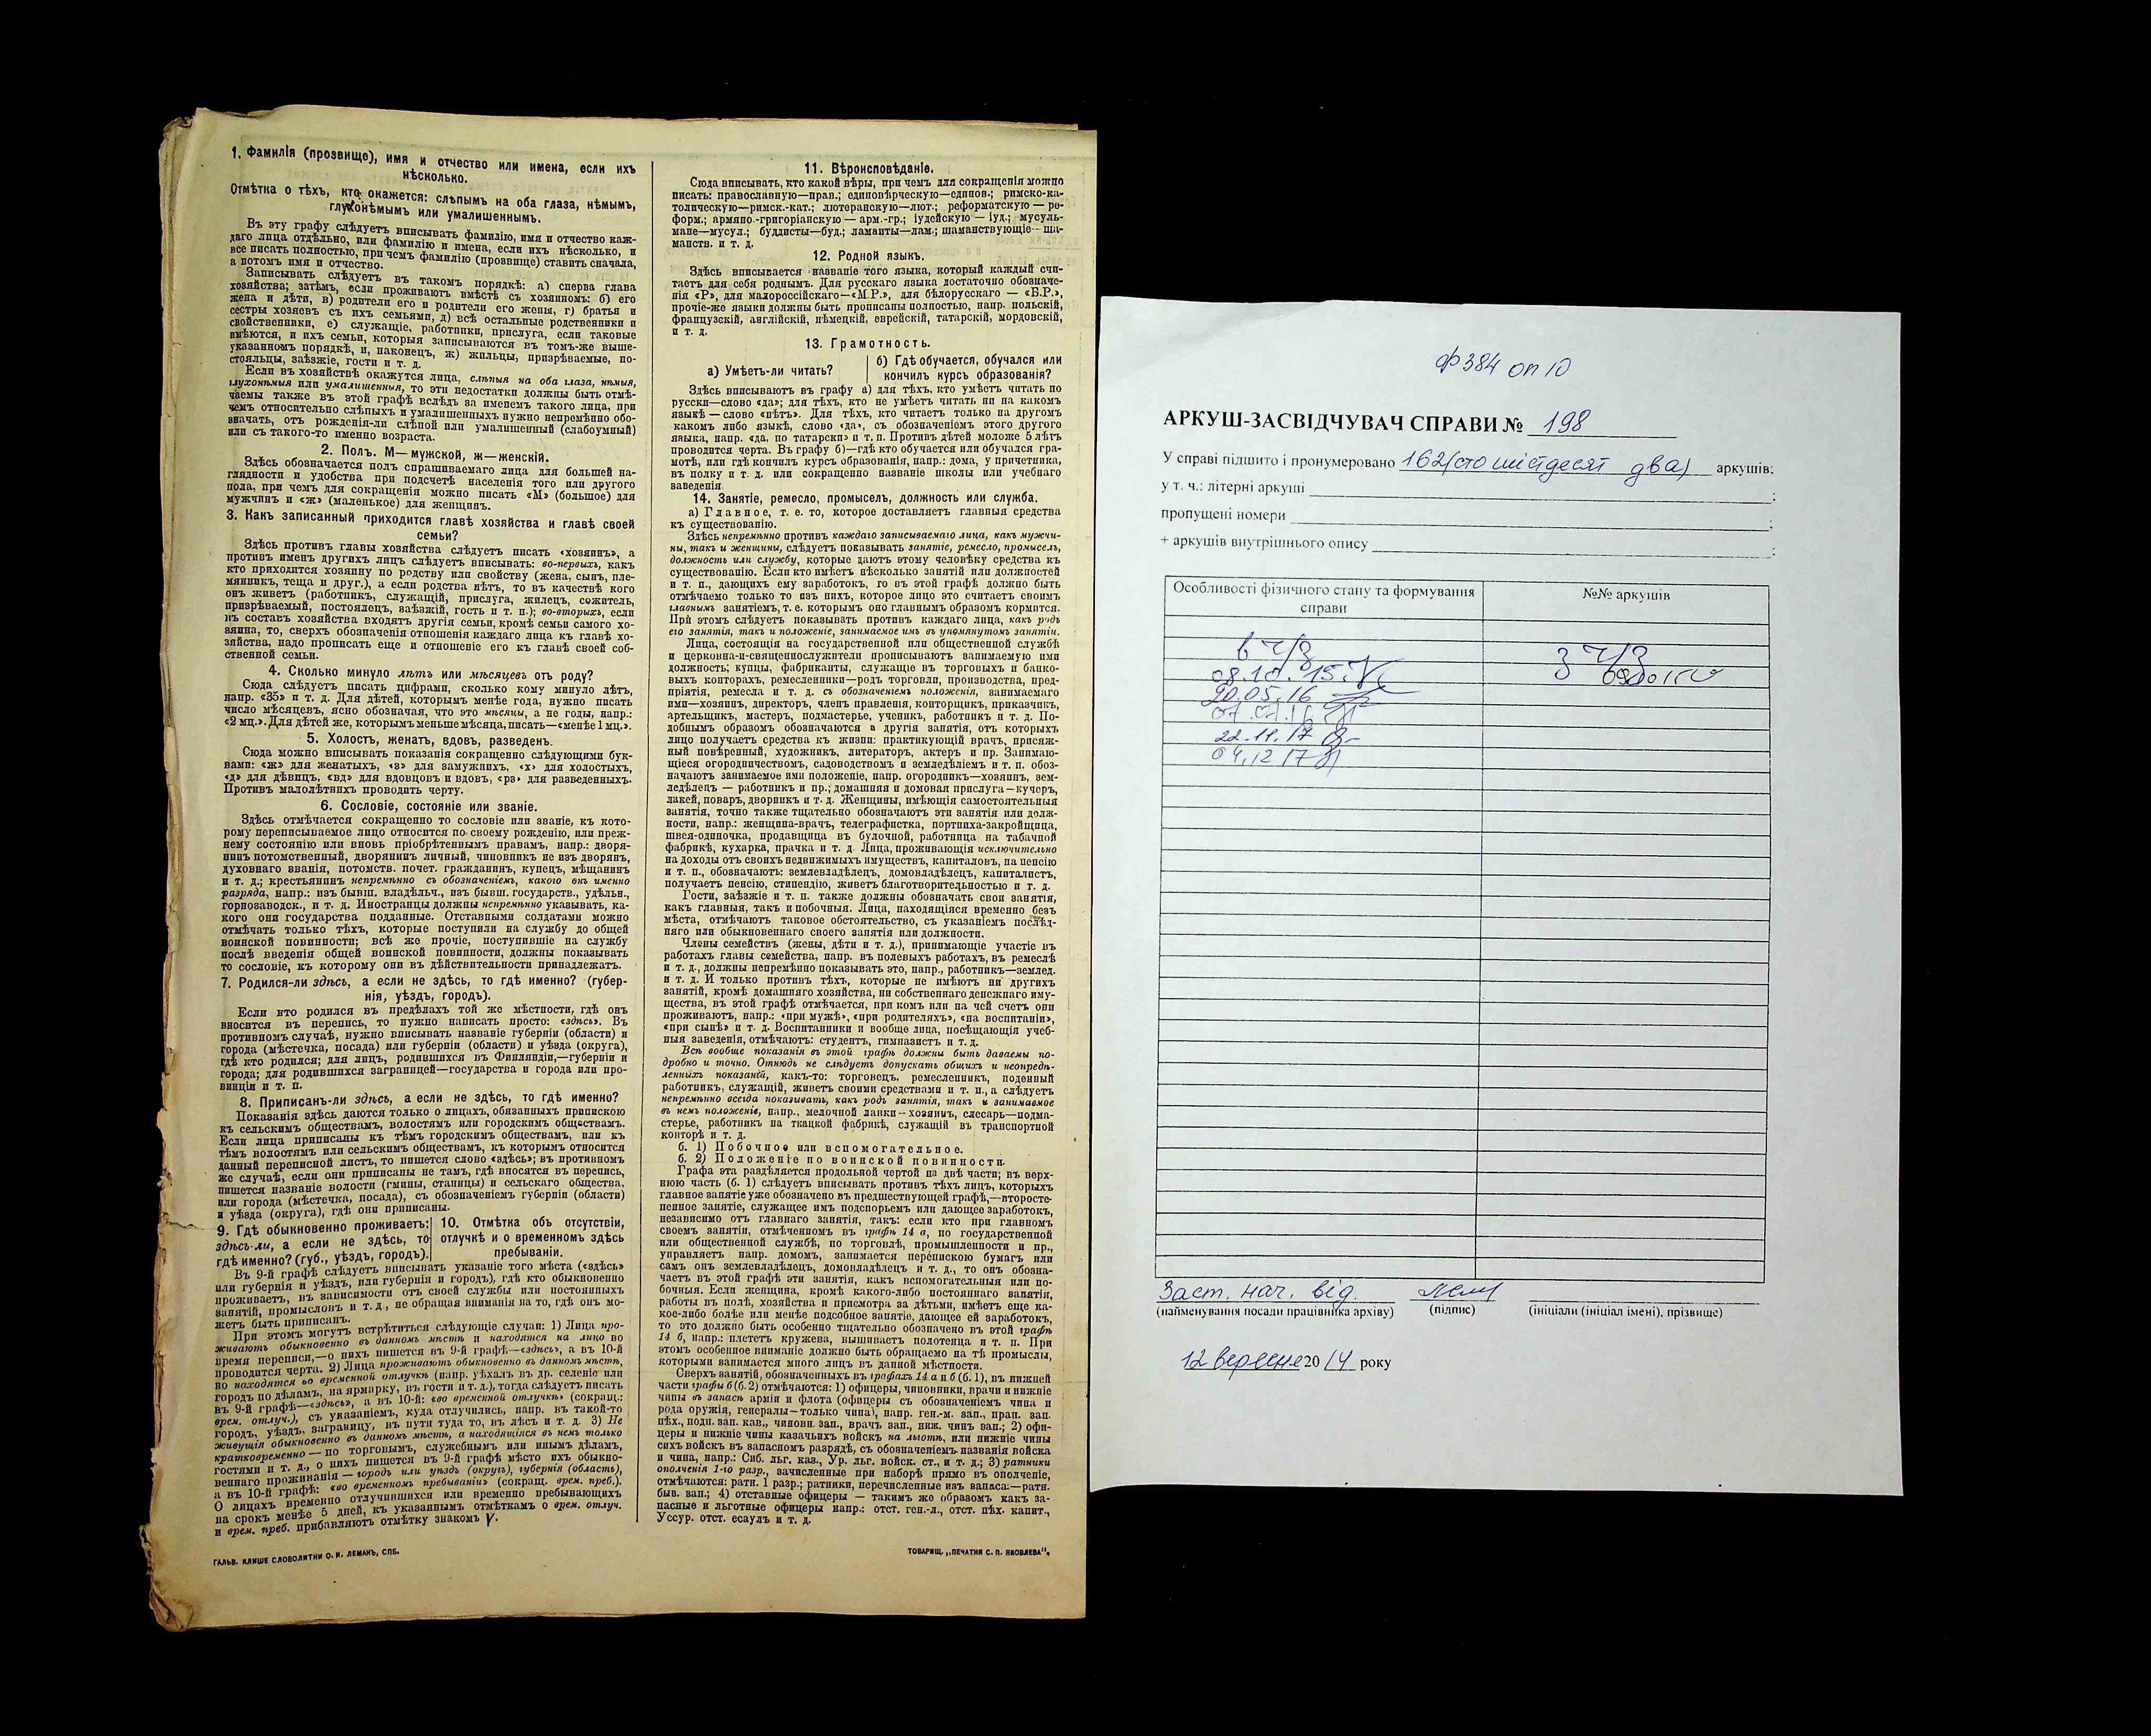 1. Фамилія (прозвище), имя и отчество или имена, если ихъ
нѣсколько.
Отмѣтка о тѣхъ, кто окажется: слѣпымъ на оба глаза, нѣмымъ,
глухонѣмымъ или умалишеннымъ.
Въ эту графу слѣдуетъ вписывать фамилію, имя и отчество каж-
даго лица отдѣльно, или фамилію и имена, если ихъ нѣсколько, и
все писать полностью, при чемъ фамилію (прозвище) ставить сначала,
а потомъ имя и отчество.
Записывать слѣдуетъ въ такомъ порядкѣ: а) сперва глава
хозяйства; затѣмъ, если проживаютъ вмѣстѣ съ хозяиномъ: б) его
жена и дѣти, в) родители его и родители его жены, г) братья и
сестры хозяевъ съ ихъ семьями, д) всѣ остальные родственники и
свойственники, е) служащіе, работники, прислуга, если таковые
имѣются, и ихъ семьи, которыя записываются въ томъ-же выше-
указанномъ порядкѣ, и, наконецъ, ж) жильцы, призрѣваемые, по-
стояльцы, заѣзжіе, гости и т. д.
Если въ хозяйствѣ окажутся лица, слѣпыя на оба глаза, нѣмыя,
глухонѣмыя или умалишенныя, то эти недостатки должны быть отмѣ-
чаемы также въ этой графѣ вслѣдъ за именемъ такого лица, при
чемъ относительно слѣпыхъ и умалишенныхъ нужно непремѣнно обо-
значать, отъ рожденія-ли слѣпой или умалишенный (слабоумный)
или съ такого-то именно возраста.
2. Полъ. М—мужской, ж—женскій.
Здѣсь обозначается полъ спрашиваемаго лица для большей на-
глядности и удобства при подсчетѣ населенія того или другого
пола, при чемъ для сокращенія можно писать «М» (большое) для
мужчинъ и «ж» (маленькое) для женщинъ.
3. Какъ записанный приходится главѣ хозяйства и главѣ своей
семьи?
Здѣсь противъ главы хозяйства слѣдуетъ писать «хозяинъ», а
противъ именъ другихъ лицъ слѣдуетъ вписывать: во-первыхъ, какъ
кто приходится хозяину по родству или свойству (жена, сынъ, пле-
мянникъ, теща и друг.), а если родства нѣтъ, то въ качествѣ кого
онъ живетъ (работникъ, служащій, прислуга, жилецъ, сожитель,
призрѣваемый, постоялецъ, заѣзжій, гость и т. п.); во-вторыхъ, если
въ составъ хозяйства входятъ другія семьи, кромѣ семьи самого хо-
зяина, то, сверхъ обозначенія отношенія каждаго лица къ главѣ хо-
зяйства, надо прописать еще и отношеніе его къ главѣ своей соб-
ственной семьи.
4. Сколько минуло лѣтъ или мѣсяцевъ отъ роду?
Сюда слѣдуетъ писать цифрами, сколько кому минуло лѣтъ,
напр. «35» и т. д. Для дѣтей, которымъ менѣе года, нужно писать
число мѣсяцевъ, ясно обозначая, что это мѣсяцы, а не годы, напр.:
«2 мц.». Для дѣтей же, которымъ меньше мѣсяца, писать—«менѣе 1 мц.».
5. Холостъ, женатъ, вдовъ, разведенъ.
Сюда можно вписывать показанія сокращенно слѣдующими бук-
вами: «ж» для женатыхъ, «з» для замужнихъ, «х» для холостыхъ,
«д» для дѣвицъ, «вд» для вдовцовъ и вдовъ, «рз» для разведенныхъ.
Противъ малолѣтнихъ проводить черту.
6. Сословіе, состояніе или званіе.
Здѣсь отмѣчается сокращенно то сословіе или званіе, къ кото-
рому переписываемое лицо относится по своему рожденію, или преж-
нему состоянію или вновь пріобрѣтеннымъ правамъ, напр.: дворя-
нинъ потомственный, дворянинъ личный, чиновникъ не изъ дворянъ,
духовнаго званія, потомств. почет. гражданинъ, купецъ, мѣщанинъ
и т. д.; крестьянинъ непремѣнно съ обозначеніемъ, какого онъ именно
разряда, напр.: изъ бывш. владѣльч., изъ бывш. государств., удѣльн.,
горнозаводск., и т. д. Иностранцы должны непремѣнно указывать, ка-
кого они государства подданные. Отставными солдатами можно
отмѣчать только тѣхъ, которые поступили на службу до общей
воинской повинности; всѣ же прочіе, поступившіе на службу
послѣ введенія общей воинской повинности, должны показывать
то сословіе, къ которому они въ дѣйствительности принадлежатъ.
7. Родился-ли здѣсь, а если не здѣсь, то гдѣ именно? (губер-
нія, уѣздъ, городъ).
Если кто родился въ предѣлахъ той же мѣстности, гдѣ онъ
вносится въ перепись, то нужно написать просто: «здѣсь». Въ
противномъ случаѣ, нужно вписывать названіе губерніи (области) и
города (мѣстечка, посада) или губерніи (области) и уѣзда (округа),
гдѣ кто родился; для лицъ, родившихся въ Финляндіи,—губерніи и
города; для родившихся заграницей—государства и города или про-
винціи и т. п.
8. Приписанъ-ли здѣсь, а если не здѣсь, то гдѣ именно?
Показанія здѣсь даются только о лицахъ, обязанныхъ припискою
къ сельскимъ обществамъ, волостямъ или городскимъ обществамъ.
Если лица приписаны къ тѣмъ городскимъ обществамъ, или къ
тѣмъ волостямъ или сельскимъ обществамъ, къ которымъ относится
данный переписной листъ, то пишется слово «здѣсь»; въ противномъ
же случаѣ, если они приписаны не тамъ, гдѣ вносятся въ перепись,
пишется названіе волости (гмины, станицы) и сельскаго общества,
или города (мѣстечка, посада), съ обозначеніемъ губерніи (области)
и уѣзда (округа), гдѣ они приписаны.
9. Гдѣ обыкновенно проживаетъ:
здѣсь-ли, а если не здѣсь, то
гдѣ именно? (губ., уѣздъ, городъ).
10. Отмѣтка объ отсутствіи,
отлучкѣ и о временномъ здѣсь
пребываніи.
Въ 9-й графѣ слѣдуетъ вписывать указаніе того мѣста («здѣсь»
или губернія и уѣздъ, или губернія и городъ), гдѣ кто обыкновенно
проживаетъ, въ зависимости отъ своей службы или постоянныхъ
занятій, промысловъ и т. д., не обращая вниманія на то, гдѣ онъ мо-
жетъ быть приписанъ.
При этомъ могутъ встрѣтиться слѣдующіе случаи: 1) Лица про-
живаютъ обыкновенно въ данномъ мѣстѣ и находятся на лицо во
время переписи,—о нихъ пишется въ 9-й графѣ—«здѣсь», а въ 10-й
проводится черта. 2) Лица проживаютъ обыкновенно въ данномъ мѣстѣ,
но находятся во временной отлучкѣ (напр. уѣхалъ въ др. селеніе или
городъ по дѣламъ, на ярмарку, въ гости и т. д.), тогда слѣдуетъ писать
въ 9-й графѣ—«здѣсь», а въ 10-й: «во временной отлучкѣ» (сокращ.:
врем. отлуч.), съ указаніемъ, куда отлучились, напр. въ такой-то
городъ, уѣздъ, заграницу, въ пути туда то, въ лѣсъ и т. д. 3) Не
живущія обыкновенно въ данномъ мѣстѣ, а находящіяся въ немъ только
кратковременно — по торговымъ, служебнымъ или инымъ дѣламъ,
гостями и т. д., о нихъ пишется въ 9-й графѣ мѣсто ихъ обыкно-
веннаго проживанія — городъ или уѣздъ (округъ), губернія (область),
а въ 10-й графѣ: «во временномъ пребываніи» (сокращ. врем. преб.).
О лицахъ временно отлучившихся или временно пребывающихъ
на срокъ менѣе 5 дней, къ указаннымъ отмѣткамъ о врем. отлуч.
и врем. преб. прибавляютъ отмѣтку знакомъ V.
ГАЛЬВ. КЛИШЕ СЛОВОЛИТНИ О. И. ЛЕМАНЪ, СПБ.
11. Вѣроисповѣданіе.
Сюда вписывать, кто какой вѣры, при чемъ для сокращенія можно
писать: православную—прав.; единовѣрческую—единов.; римско-ка-
толическую—римск.-кат.; лютеранскую—лют.; реформатскую — ре-
форм.; армяно-григоріанскую — арм.-гр.; іудейскую — іуд.; мусуль-
мане—мусул.; буддисты—буд.; ламаиты—лам.; шаманствующіе—ша-
манств. и т. д.
12. Родной языкъ.
Здѣсь вписывается названіе того языка, который каждый счи-
таетъ для себя роднымъ. Для русскаго языка достаточно обозначе-
нія «Р», для малороссійскаго—«М.Р.», для бѣлорусскаго — «Б.Р.»,
прочіе-же языки должны быть прописаны полностью, напр. польскій,
французскій, англійскій, нѣмецкій, еврейскій, татарскій, мордовскій,
и т. д.
13. Грамотность.
а) Умѣетъ-ли читать?
б) Гдѣ обучается, обучался или
кончилъ курсъ образованія?
Здѣсь вписываютъ въ графу а) для тѣхъ, кто умѣетъ читать по
русски—слово «да»; для тѣхъ, кто не умѣетъ читать ни на какомъ
языкѣ — слово «нѣтъ». Для тѣхъ, кто читаетъ только на другомъ
какомъ либо языкѣ, слово «да», съ обозначеніемъ этого другого
языка, напр. «да, по татарски» и т. п. Противъ дѣтей моложе 5 лѣтъ
проводится черта. Въ графу б)—гдѣ кто обучается или обучался гра-
мотѣ, или гдѣ кончилъ курсъ образованія, напр.: дома, у причетника,
въ полку и т. д. или сокращенно названіе школы или учебнаго
заведенія.
14. Занятіе, ремесло, промыселъ, должность или служба.
а) Главное, т. е. то, которое доставляетъ главныя средства
къ существованію.
Здѣсь непремѣнно противъ каждаго записываемаго лица, какъ мужчи-
ны, такъ и женщины, слѣдуетъ показывать занятіе, ремесло, промыселъ,
должность или службу, которые даютъ этому человѣку средства къ
существованію. Если кто имѣетъ нѣсколько занятій или должностей
и т. п., дающихъ ему заработокъ, то въ этой графѣ должно быть
отмѣчаемо только то изъ нихъ, которое лицо это считаетъ своимъ
главнымъ занятіемъ, т. е. которымъ оно главнымъ образомъ кормится.
При этомъ слѣдуетъ показывать противъ каждаго лица, какъ родъ
его занятія, такъ и положеніе, занимаемое имъ въ упомянутомъ занятіи.
Лица, состоящія на государственной или общественной службѣ
и церковно-и-священнослужители прописываютъ занимаемую ими
должность; купцы, фабриканты, служащіе въ торговыхъ и банко-
выхъ конторахъ, ремесленники—родъ торговли, производства, пред-
пріятія, ремесла и т. д. съ обозначеніемъ положенія, занимаемаго
ими—хозяинъ, директоръ, членъ правленія, конторщикъ, приказчикъ,
артельщикъ, мастеръ, подмастерье, ученикъ, работникъ и т. д. По-
добнымъ образомъ обозначаются и другія занятія, отъ которыхъ
лицо получаетъ средства къ жизни: практикующій врачъ, присяж-
ный повѣренный, художникъ, литераторъ, актеръ и пр. Занимаю-
щіеся огородничествомъ, садоводствомъ и земледѣліемъ и т. п. обоз-
начаютъ занимаемое ими положеніе, напр. огородникъ—хозяинъ, зем-
ледѣлецъ — работникъ и пр.; домашняя и домовая прислуга—кучеръ,
лакей, поваръ, дворникъ и т. д. Женщины, имѣющія самостоятельныя
занятія, точно также тщательно обозначаютъ эти занятія или долж-
ности, напр.: женщина-врачъ, телеграфистка, портниха-закройщица,
швея-одиночка, продавщица въ булочной, работница на табачной
фабрикѣ, кухарка, прачка и т. д. Лица, проживающія исключительно
на доходы отъ своихъ недвижимыхъ имуществъ, капиталовъ, на пенсію
и т. п., обозначаютъ: землевладѣлецъ, домовладѣлецъ, капиталистъ,
получаетъ пенсію, стипендію, живетъ благотворительностью и т. д.
Гости, заѣзжіе и т. п. также должны обозначать свои занятія,
какъ главныя, такъ и побочныя. Лица, находящіяся временно безъ
мѣста, отмѣчаютъ таковое обстоятельство, съ указаніемъ послѣд-
няго или обыкновеннаго своего занятія или должности.
Члены семействъ (жены, дѣти и т. д.), принимающіе участіе въ
работахъ главы семейства, напр. въ полевыхъ работахъ, въ ремеслѣ
и т. д., должны непремѣнно показывать это, напр., работникъ—землед.
и т. д. И только противъ тѣхъ, которые не имѣютъ ни другихъ
занятій, кромѣ домашняго хозяйства, ни собственнаго денежнаго иму-
щества, въ этой графѣ отмѣчается, при комъ или на чей счетъ они
проживаютъ, напр.: «при мужѣ», «при родителяхъ», «на воспитаніи»,
«при сынѣ» и т. д. Воспитанники и вообще лица, посѣщающія учеб-
ныя заведенія, отмѣчаютъ: студентъ, гимназистъ и т. д.
Всѣ вообще показанія въ этой графѣ должны быть даваемы по-
дробно и точно. Отнюдь не слѣдуетъ допускать общихъ и неопредѣ-
ленныхъ показаній, какъ-то: торговецъ, ремесленникъ, поденный
работникъ, служащій, живетъ своими средствами и т. п., а слѣдуетъ
непремѣнно всегда показывать, какъ родъ занятія, такъ и занимаемое
въ немъ положеніе, напр., мелочной лавки—хозяинъ, слесарь—подма-
стерье, работникъ на ткацкой фабрикѣ, служащій въ транспортной
конторѣ и т. д.
б. 1) Побочное или вспомогательное.
б. 2) Положеніе по воинской повинности.
Графа эта раздѣляется продольной чертой на двѣ части; въ верх-
нюю часть (б. 1) слѣдуетъ вписывать противъ тѣхъ лицъ, которыхъ
главное занятіе уже обозначено въ предшествующей графѣ,—второсте-
пенное занятіе, служащее имъ подспорьемъ или дающее заработокъ,
независимо отъ главнаго занятія, такъ: если кто при главномъ
своемъ занятіи, отмѣченномъ въ графѣ 14 а, по государственной
или общественной службѣ, по торговлѣ, промышленности и пр.,
управляетъ напр. домомъ, занимается перепискою бумагъ или
самъ онъ землевладѣлецъ, домовладѣлецъ и т. д., то онъ обозна-
чаетъ въ этой графѣ эти занятія, какъ вспомогательныя или по-
бочныя. Если женщина, кромѣ какого-либо постояннаго занятія,
работы въ полѣ, хозяйства и присмотра за дѣтьми, имѣетъ еще ка-
кое-либо болѣе или менѣе подсобное занятіе, дающее ей заработокъ,
то это должно быть особенно тщательно обозначено въ этой графѣ
14 б, напр.: плететъ кружева, вышиваетъ полотенца и т. п. При
этомъ особенное вниманіе должно быть обращаемо на тѣ промыслы,
которыми занимается много лицъ въ данной мѣстности.
Сверхъ занятій, обозначенныхъ въ графахъ 14 а и б (б. 1), въ нижней
части графы б (б. 2) отмѣчаются: 1) офицеры, чиновники, врачи и нижніе
чины въ запасѣ арміи и флота (офицеры съ обозначеніемъ чина и
рода оружія, генералы—только чина), напр. ген.-м. зап., прап. зап.
пѣх., подп. зап. кав., чиновн. зап., врачъ зап., ниж. чинъ зап.; 2) офи-
церы и нижніе чины казачьихъ войскъ на льготѣ, или нижніе чины
сихъ войскъ въ запасномъ разрядѣ, съ обозначеніемъ названія войска
и чина, напр.: Сиб. льг. каз., Ур. льг. войск. ст., и т. д.; 3) ратники
ополченія 1-го разр., зачисленные при наборѣ прямо въ ополченіе,
отмѣчаются: ратн. 1 разр.; ратники, перечисленные изъ запаса:—ратн.
быв. зап.; 4) отставные офицеры — такимъ же образомъ какъ за-
пасные и льготные офицеры напр.: отст. ген.-л., отст. пѣх. капит.,
Уссур. отст. есаулъ и т. д.
ТОВАРИЩ. „ПЕЧАТНЯ С. П. ЯКОВЛЕВА".
ф 384 оп 10
АРКУШ-ЗАСВІДЧУВАЧ СПРАВИ № 198
У справі підшито і пронумеровано 162 (сто шістдесят два) аркушів;
у т. ч.: літерні аркуші ;
пропущені номери ;
+ аркушів внутрішнього опису ;
Особливості фізичного стану та формування
справи
№№ аркушів
в ч/з
з ч/з
08.10.15
20.05.16
22.11.17
04.12 17
Заст. нач. від.
(найменування посади працівника архіву) (підпис) (ініціали (ініціал імені), прізвище)
12 вересня 2014 року